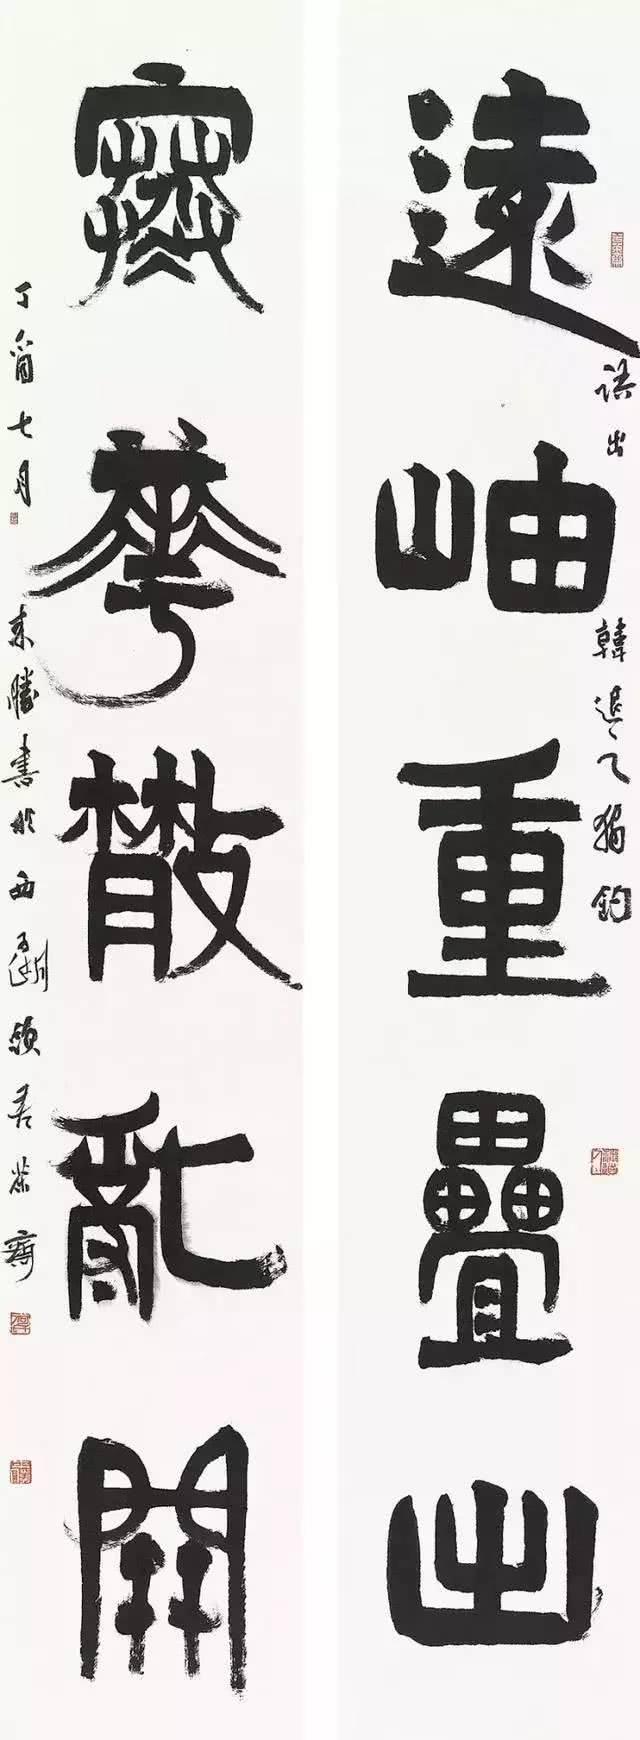 遠岫重疊出
語出韓退之獨釣
寒華散亂開
丁酉七月
勝書於西子湖頭茶齋